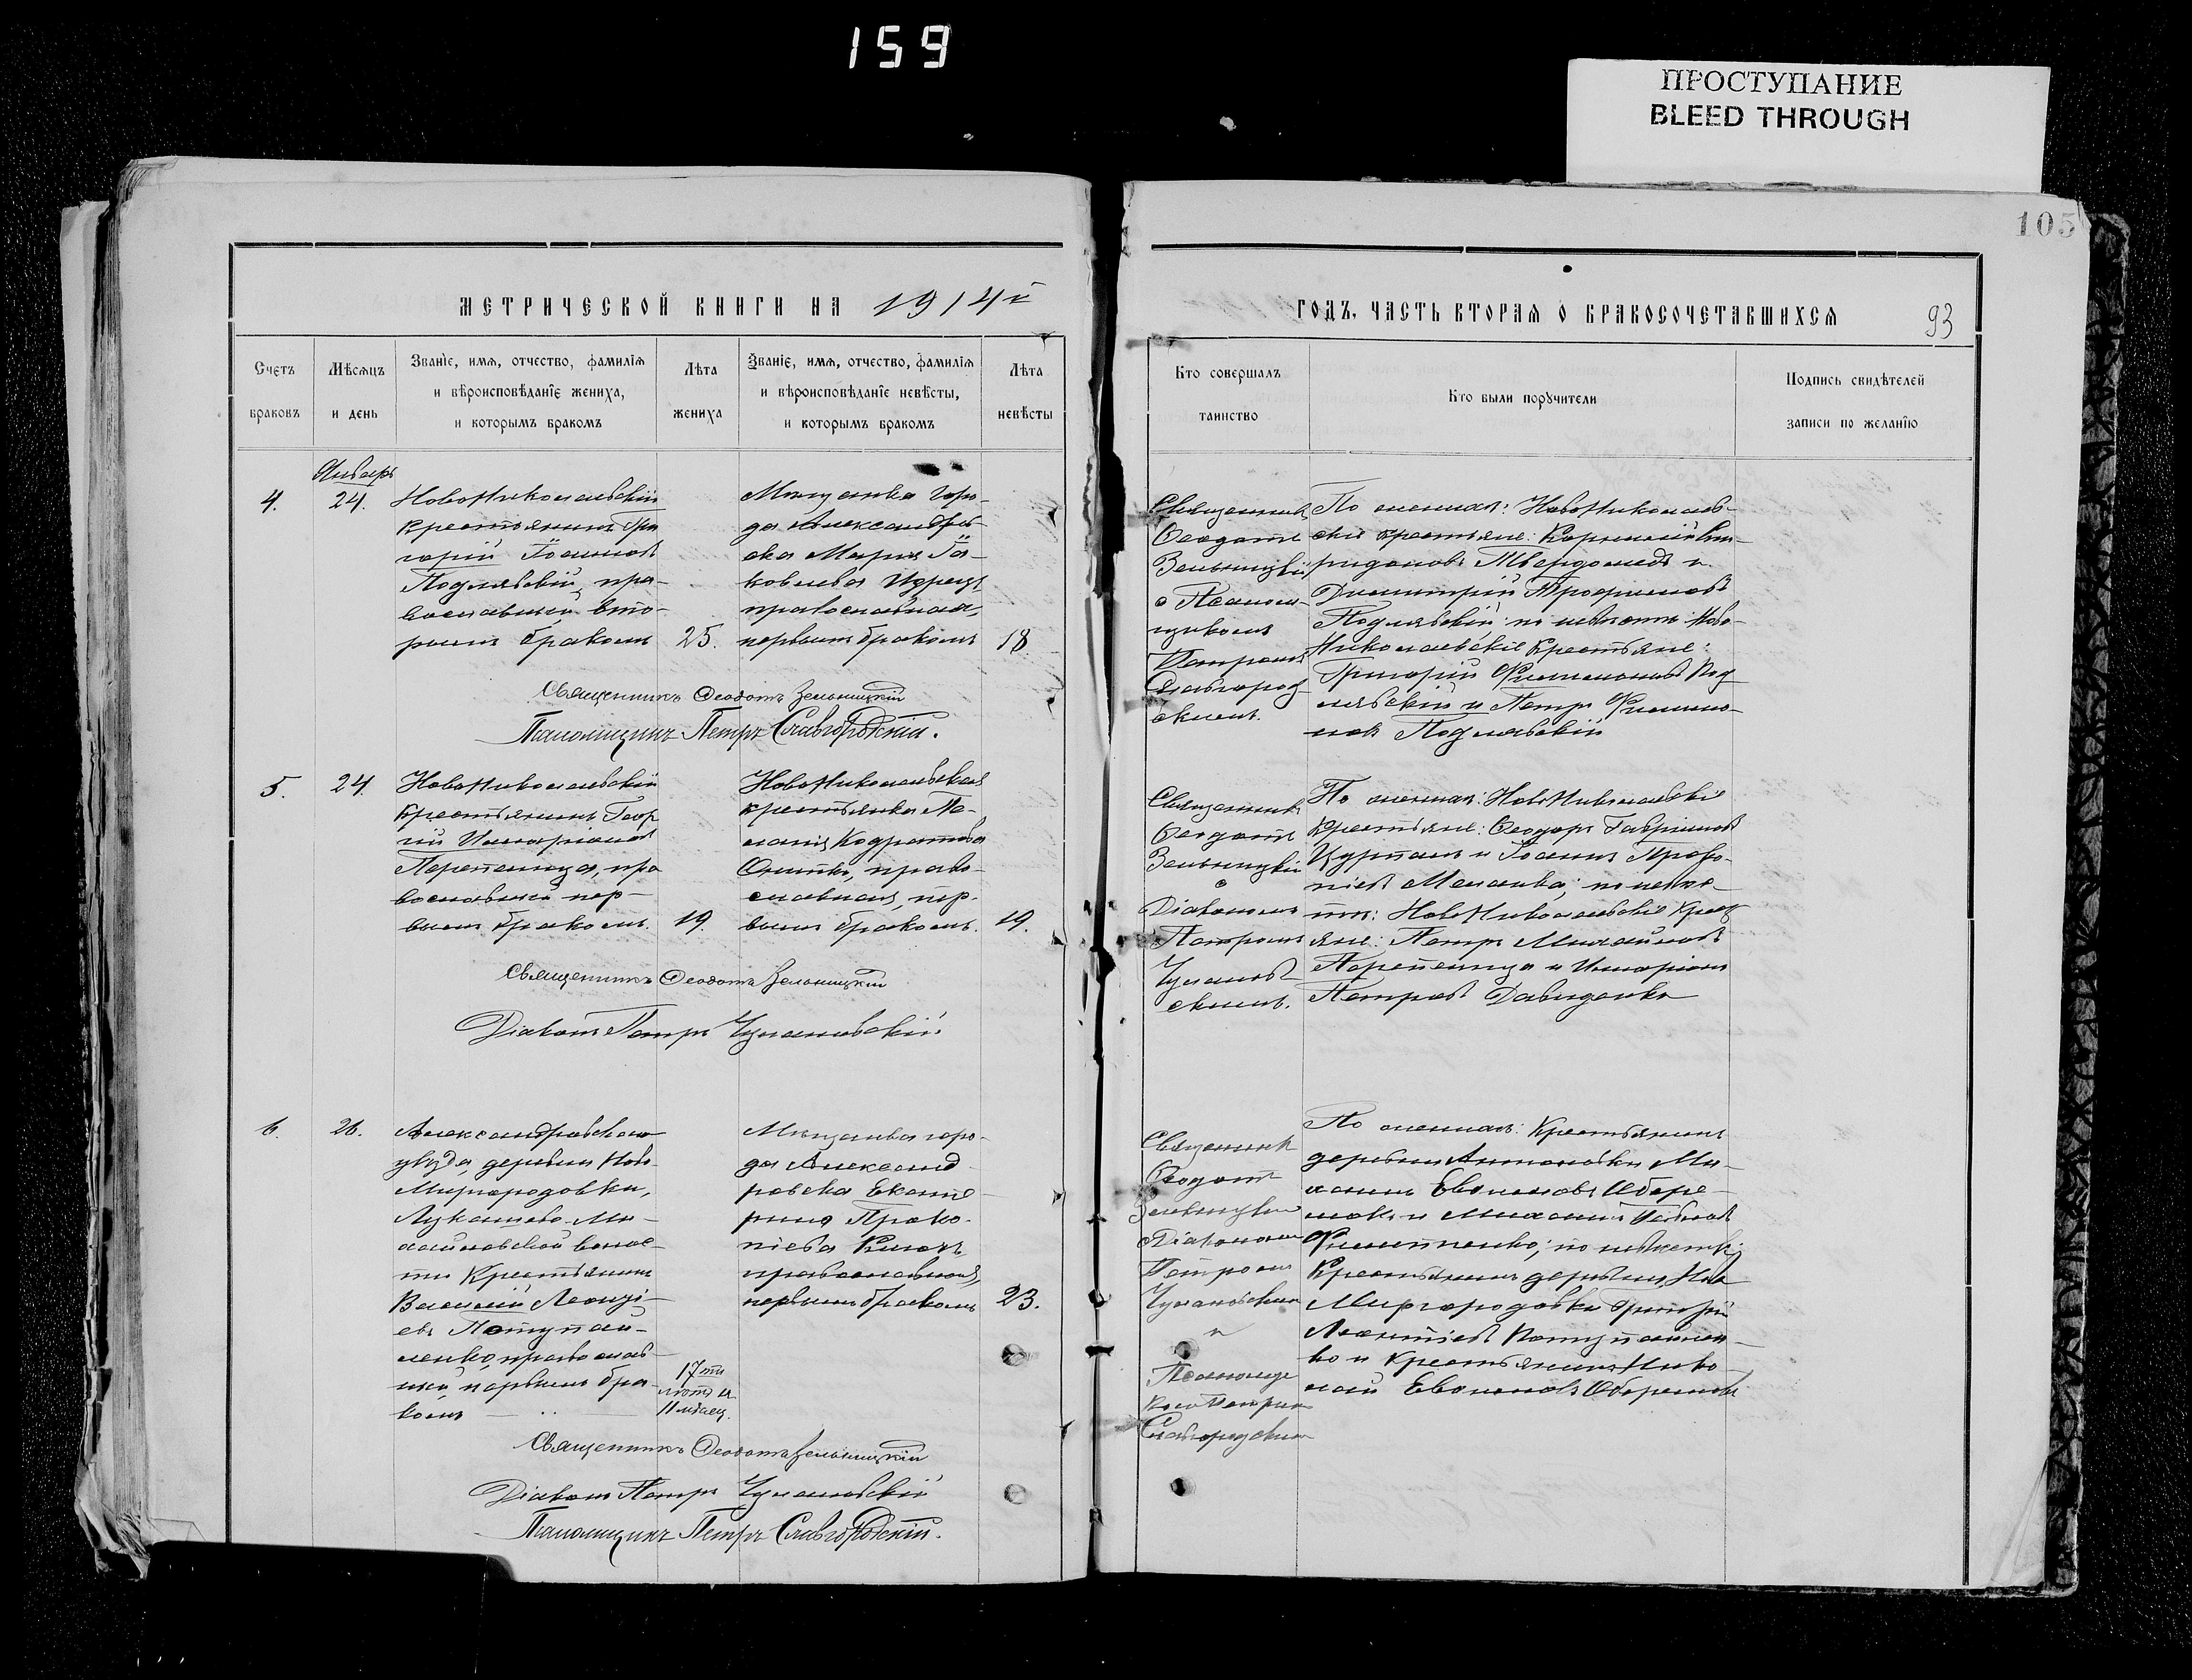 159
ПРОСТУПАНИЕ
BLEED THROUGH
105
МЕТРИЧЕСКОЙ КНИГИ НА 1914й
ГОДЪ, ЧАСТЬ ВТОРАЯ О БРАКОСОЧЕТАВШИХСЯ
93
Счетъ
браковъ
Мѣсяцъ
и день
Званіе, имя, отчество, фамилія
и вѣроисповѣданіе жениха,
и которымъ бракомъ
Лѣта
жениха
Званіе, имя, отчество, фамилія
и вѣроисповѣданіе невѣсты,
и которымъ бракомъ
Лѣта
невѣсты
Кто совершалъ
таинство
Кто были поручители
Подпись свидѣтелей
записи по желанію
Январь
4.
24.
НовоНиколаевскій
крестьянинъ Гри
горій Іоанновъ
Подлявскій, пра-
вославный вто-
рымъ бракомъ
25.
Мѣщанка горо-
да Александров-
ска Марія Іа-
ковлева
православная,
первымъ бракомъ
18.
Священникъ
Ѳеодотъ
Зельницкій
с Псалом-
щикомъ
Петромъ
Славгород
скимъ.
По женихѣ: НовоНиколаев-
скіе крестьяне: Корнилій Спи-
ридоновъ Твердохлѣбъ и
Димитрій Трофимовъ
Подлявскій; по невѣстѣ: Ново-
Николаевскіе крестьяне:
Григорій Филимоновъ Под
лявскій и Петръ Филимо-
новъ Подлявскій
Священникъ Ѳеодотъ Зельницкій
Псаломщикъ Петръ Славгородскій.
5.
24.
НовоНиколаевскій
крестьянинъ Геор
гій Иларіоновъ
Перепелица, пра
вославный пер-
вымъ бракомъ.
19.
НовоНиколаевская
крестьянка Ме-
ланія Кодратова
право-
славная, пер-
вымъ бракомъ.
19.
Священникъ
Ѳеодотъ
Зельницкій
с
Діакономъ
Петромъ
Чулановъ
скимъ.
По женихѣ: НовоНиколаевскіе
крестьяне: Ѳеодоръ Гавріиловъ
и Іоаннъ Проко-
піевъ по невѣс-
тѣ: НовоНиколаевскіе крест
яне: Петръ Михайловъ
Перепелица и Иларіонъ
Петровъ Давиденко
Священникъ Ѳеодотъ Зельницкій
Діаконъ Петръ Чулановскій
6.
26.
Александровскаго
уѣзда, деревни Ново-
Миргородовки,
Лукашево-Ми-
хайловской волос-
ти Крестьянинъ
Василій Леонтi-
евъ Потупай-
ленко, православ-
ный, первымъ бра-
комъ
17ти
лѣтъ и
11 мѣсяц.
Мѣщанка горо-
да Александ-
ровска Екате-
рина Проко-
піева
православная,
первымъ бракомъ
23.
Священникъ
Ѳеодотъ
Зельницкій
с Діакономъ
Петромъ
Чулановскимъ
и
Псаломщи
комъ Петромъ
Славгородскимъ
По женихѣ: Крестьянинъ
деревни Антоновки Ми-
хаилъ
и Михаилъ
Филиппенко; по невѣстѣ:
Крестьянинъ деревни Ново
Миргородовки Григорій
Леонтіевъ Потупайлен-
ко и крестьянинъ Нико-
лай
Священникъ Ѳеодотъ Зельницкій
Діаконъ Петръ Чулановскій
Псаломщикъ Петръ Славгородскій.